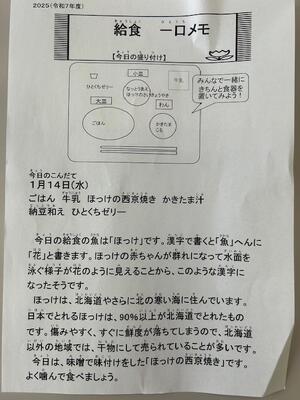 2025(令和7年度)
給食 一口メモ
【今日の盛り付け】
小皿
牛乳
ひとくちゼリー
なっとうあえ
ほっけのさいきょうやき
大皿
わん
ごはん
かきたま
みんなで一緒に
きちんと食器を
置いてみよう！
今日のこんだて
1月14日(水)
ごはん 牛乳 ほっけの西京焼き かきたま汁
納豆和え ひとくちゼリー
今日の給食の魚は「ほっけ」です。漢字で書くと「魚」へんに
「花」と書きます。ほっけの赤ちゃんが群れになって水面を
泳ぐ様子が花のように見えることから、このような漢字に
なったそうです。
ほっけは、北海道やさらに北の寒い海に住んでいます。
日本でとれるほっけは、90％以上が北海道でとれたもの
です。傷みやすく、すぐに鮮度が落ちてしまうので、北海道
以外の地域では、干物にして売られていることが多いです。
今日は、味噌で味付けをした「ほっけの西京焼き」です。
よく噛んで食べましょう。